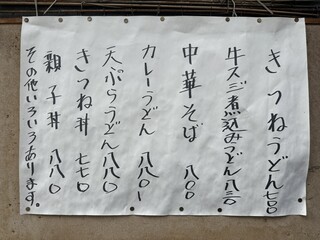 きつねうどん 七七〇
牛スジ煮込みうどん 八三〇
中華そば 八〇〇
カレーうどん 八八〇
天ぷらうどん 八八〇
きつね丼 七七〇
親子丼 八八〇
その他いろいろあります。